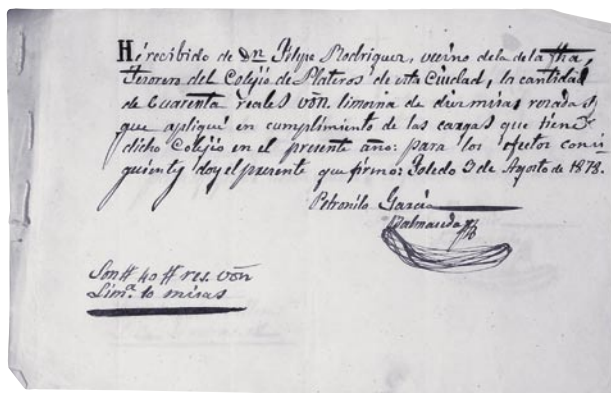 Hé recibido de Dn Felipe Rodriguez, vecino de la de la fha,
Tesorero del Colejio de Plateros de esta Ciudad, la cantidad
de Cuarenta reales vón. limosna de diez misas rezadas,
que apliqué en cumplimiento de las cargas que tiene
dicho Colejio en el presente año: para los efectos consi-
guientes doy el presente que firmo: Toledo 3 de Agosto de 1878.
Petronilo García
Balmaseda
Son # 40 # res. vón
Limª. 10 misas